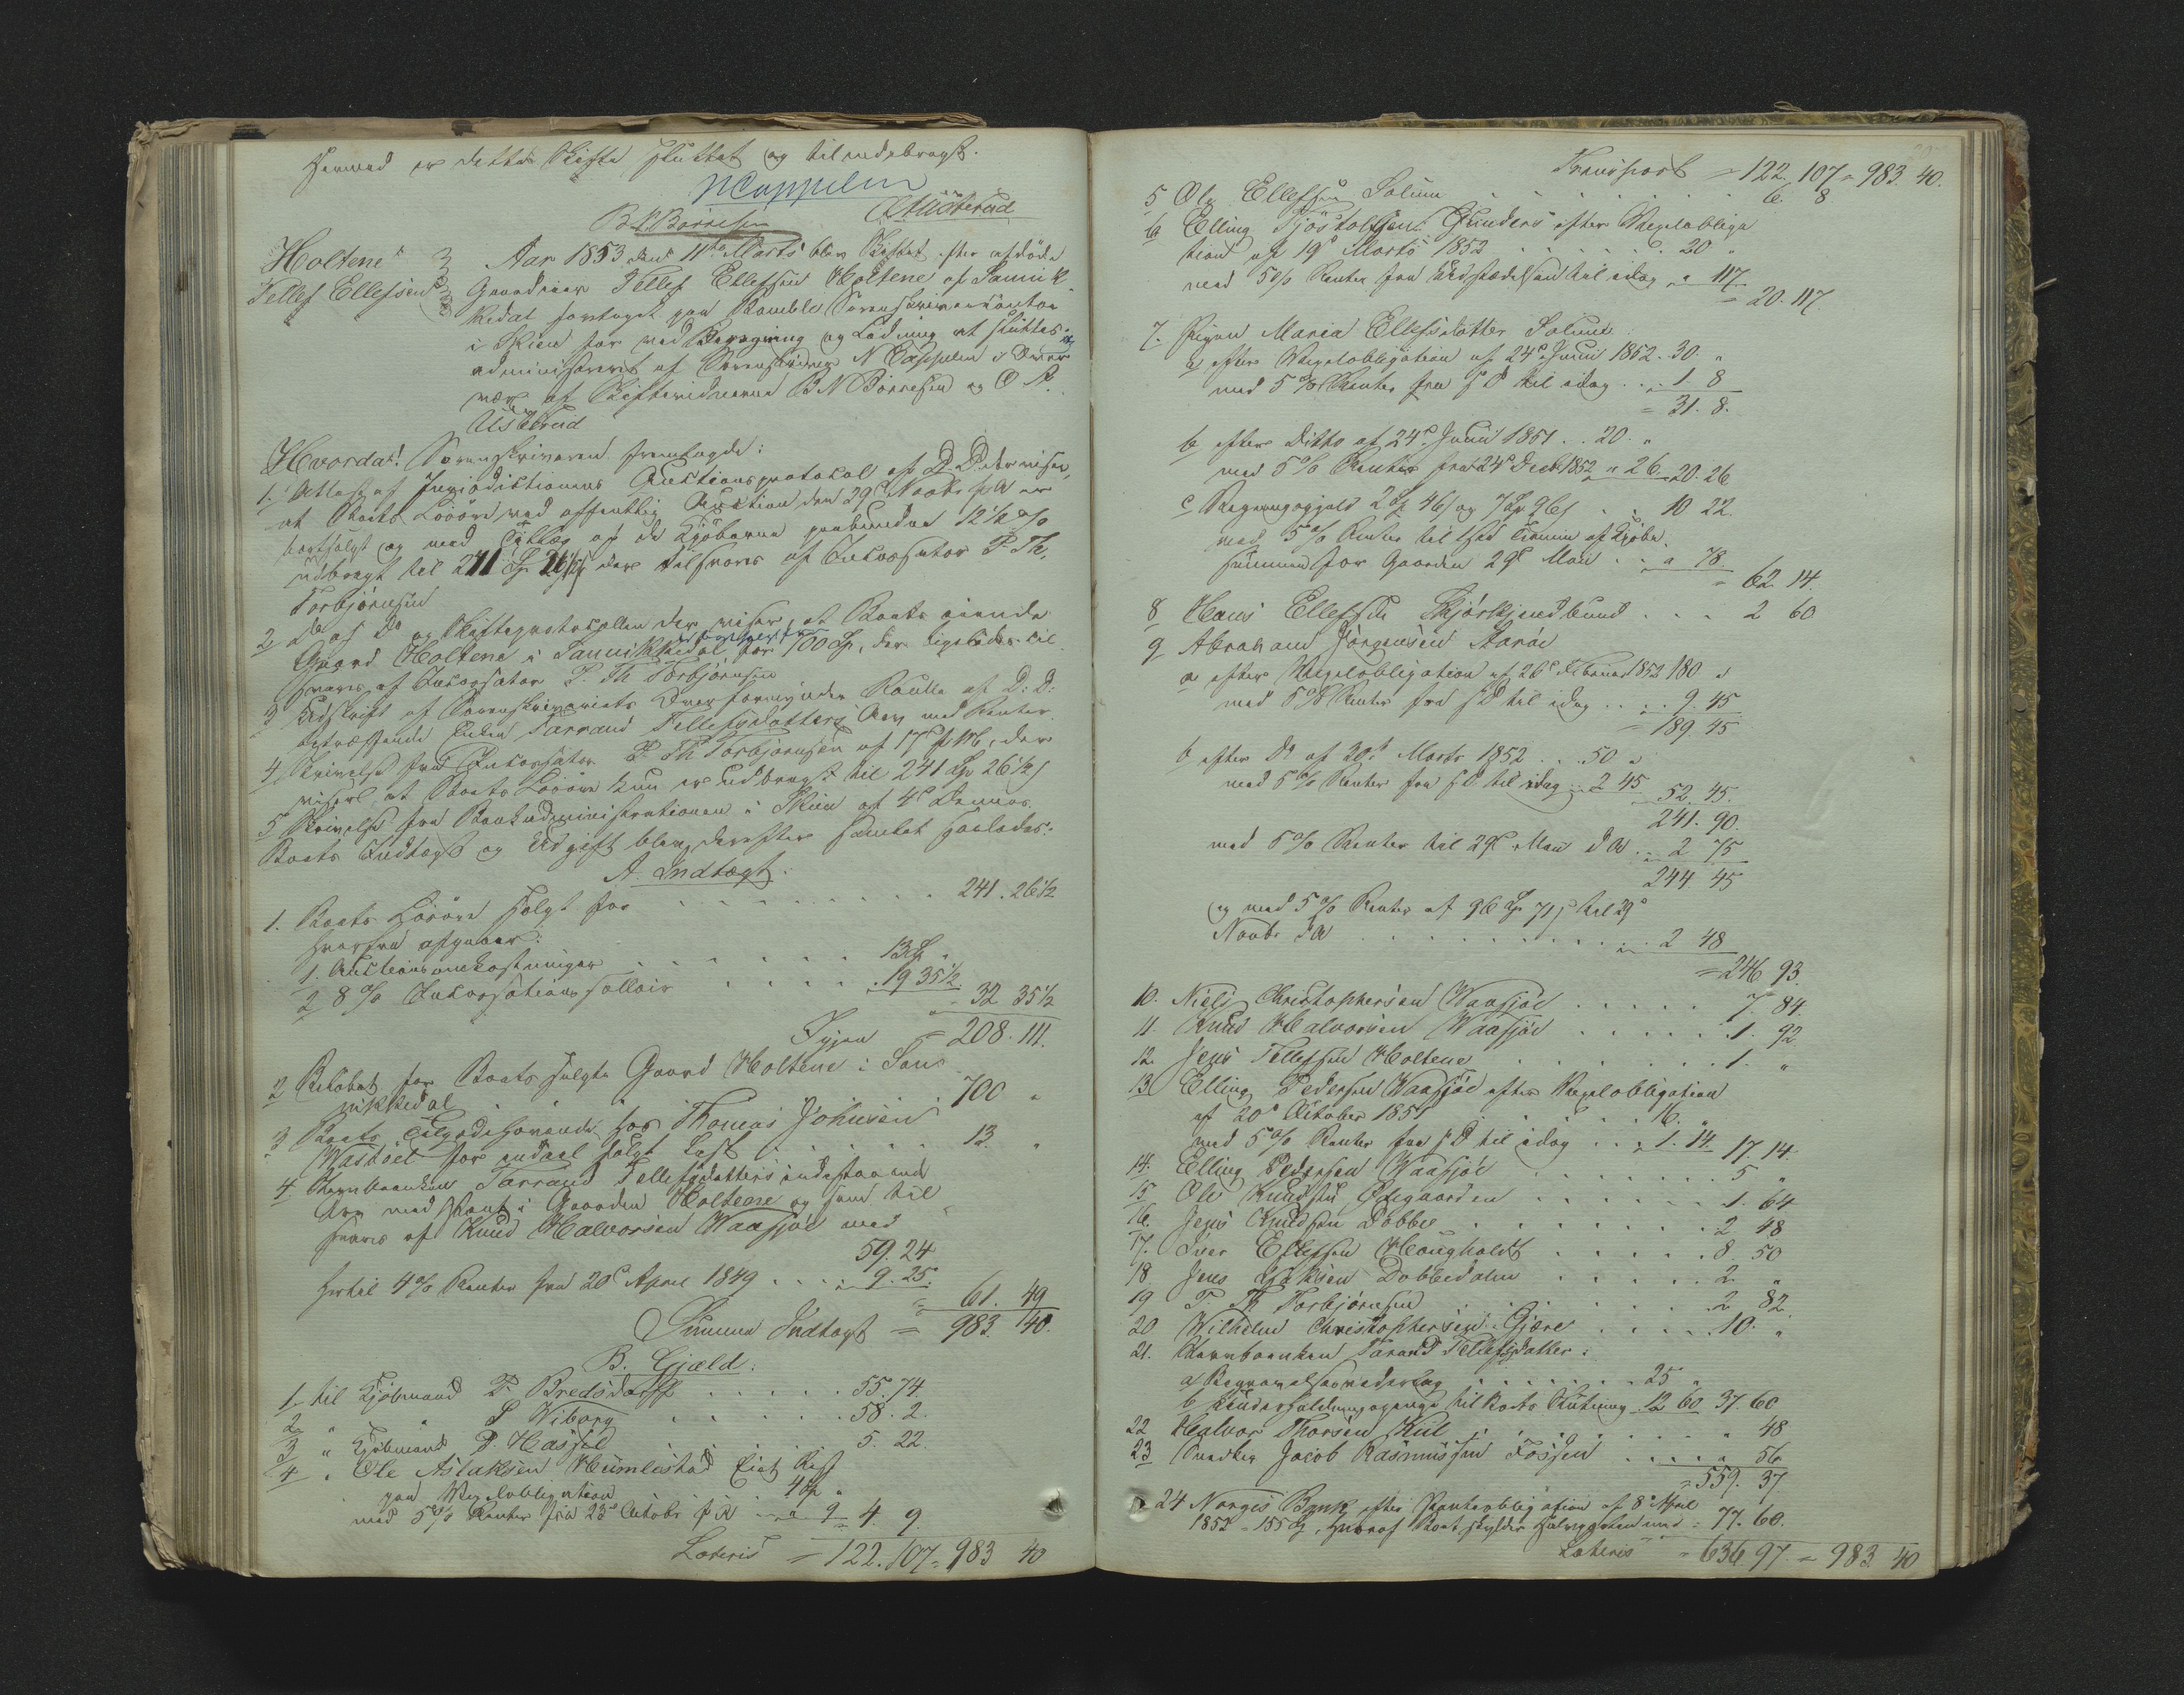 Hermed er dette Skifte sluttet og tilendebragt.
N Cappelen
B. N. Börresen
Holtene
Tellef Ellefsen
Aar 1853 den 11te Marts blev Skiftet efter afdöde
Gaardmand Tellef Ellefsen Holtene af Sannik-
kedal foretaget paa Bamble Sorenskriverkontor
i Skien for ved Beregning og Lodning at sluttes
administreret af Sorenskriver N Cappelen i Over-
vær af Skiftevidnerne B N Börresen og O A
Usterud
Hvorda! Sorenskriveren fremlagde:
1. Attest af Jurisdictionens Auctionsprotokol af D. D. der viser,
at Boets Lösöre ved offentlig Auction den 29de Novbr f. A. er
bortsolgt og med Tillæg af de Kjöberne paabudne 12½ %
udbragt til 241 Sp 26½ s der tilsvares af Incassator P. Th.
Torbjörnsen
2 Do af Do og Skifteprotocollen der viser, at Boets eiende
Gaard Holtene i Sannikkedal for 700 Sp, der ligeledes til-
svares af Incassator P. Th Torbjörnsen
3 Udskrift af Sorenskriveriets Overformynder Rulle af D: D:
betræffende Enken Tarrand Tellefsdatters Arv med Renter.
4 Skrivelse fra Incassator P. Th Torbjörnsen af 17de f. M., der
viser, at Boets Lösöre kun er udbragt til 241 Sp 26½ s
5 Skrivelse fra Bankadministrationen i Skien af 4de Dennes.
Boets Indtægt og Udgift blev derefter samlet saaledes:
A. Indtægt.
1. Boets Lösöre solgt for . . . . . . . 241. 26½
hvorfra afgaaer:
1. Auctionsomkostninger . . . . . . 13 Sp "
2 8 % Incassations sallair . . . . . 19 35½
32 35½
Igjen = 208. 111.
2 Beløbet for Boets solgte Gaard Holtene i San-
nikkedal . . . . . . 700 "
3 Boets Tilgodehavende hos Thomas Johnsen
Wastöel for endeel solgt Last . . . . . 13. "
4 Tarrand Tellefsdatters indestaaende
Arv med Pant i Gaarden Holtene og som til-
svares af Knud Halvorsen Waasjöe med
59. 24
hertil 4 % Renter fra 20de April 1849 . . . 9. 25.
= 61. 49
Summa Indtægt = 983. 40.
B. Gjæld:
1 til Kjöbmand P. Bredsdorff . . . . . 55. 74.
2 " " S Wiborg . . . . . 58. 2.
3 " Kjöbmand P. Hassel . . . . . 5. 22.
4 " Ole Aslaksen Humlestad
paa Vexelobligation 4 Sp "
med 5 % Renter fra 23de Octobr f A . . " 9 4. 9
Lateris = 122. 107 = 983 40
Transport = 122. 107 = 983. 40.
5 Ole Ellefsen Solum . . . . . . 6. 8
6 Elling Tjöstolfsen Gunders efter Vexelobliga-
tion af 19de Marts 1852 . . . . . . 20 "
med 5 % Renter fra Udstædelsen til idag " 117
= 20. 117.
7. Pigen Maria Ellefsdatter Solum:
a efter Vexelobligation af 24de Junii 1852. 30. "
med 5 % Renter fra s D til idag . . . 1 8
= 31. 8.
b efter Ditto af 24de Junii 1851 . . 20. "
med 5 % Renter fra 24de Decb 1852 " 26 20. 26
c . . 10 22.
med 5 % Renter til
Summen for Gaarden 29de Mai . . " 78.
= 62. 14.
8 Hans Ellefsen Skjörkjendbund . . . 2 60
9 Abraham Jörgensen Aaröe
a efter Vexelobligation af 26de Februar 1852 180 "
med 5 % Renter fra s D til idag . . . 9. 45
= 189 45
b efter Do af 30te Marts 1852 . . . 50 "
med 5 % Renter fra s D til idag . . 2 45
52. 45.
241. 90.
med 5 % Renter til 29de Mai d A . . 2 75
244 45
og med 5 % Renter af 96 Sp 71 s til 29de
Novbr d A . . . . . . . . . . 2 48
= 246 93.
10. Niels Christophersen Waasjöe . . . . . 7. 84.
11. Knud Halvorsen Waasjöe . . . . . 1. 92
12. Jens Tellefsen Holtene . . . . . . 1. "
13. Elling Pedersen Waasjöe efter Vexelobligation
af 20de October 1851 . . . . . . 16. "
med 5 % Renter fra s D til idag . . . 1. 14. 17. 14.
14. Elling Pedersen Waasjöe . . . . . . 5 "
15 Ole Knudsen Ødegaarden . . . . . . 1. 64
16. Jens Knudsen Dobbe . . . . . . . 2 48
17. Iver Ellefsen Haugholdt . . . . . . 8. 50
18. Jens Dobbedalen . . . . . . 2. "
19 P. Th Torbjörnsen . . . . . . 2 82
20 Wilhelm Christophersen Gjære . . . . 10. "
21. Tarand Tellefsdatter:
a) Begravelsesudlæg . . . . . . . 25 "
b til Boets Slutning . 12 60 37. 60
22 Halvor Thorsen Kiil . . . . . . . " 48
23 Snedker Jacob Rasmussen Fossen . . . . " 56
= 559. 37
24 Norges Bank efter Panteobligation af 8de April
1852 = 155 Sp, hvoraf Boet skylder Halvparten med = 77. 60.
Lateris = 636. 97 = 983. 40